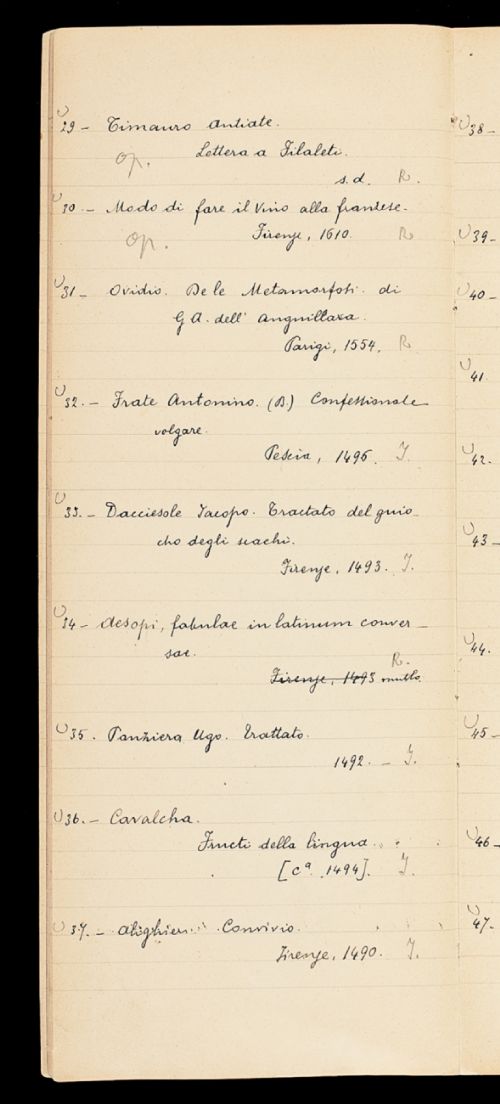 29 - Timauro Antiate.
op. Lettera a Filaleti.
s.d. R.
30 - Modo di fare il Vino alla franzese.
op. Firenze, 1610. R
31 - Ovidio. De le Metamorfosi. di
G A. dell' Anguillara.
Parigi, 1554. R
32. - Frate Antonino. (B.) Confessionale
volgare.
Pescia, 1495. I.
33. - Dacciesole Jacopo. Tractato del guio
cho degli scachi.
Firenze, 1493. I.
34 - Aesopi, fabulae in latinum conver-
sae.
R.
Firenze, 1493 mutilo
35. Panziera Ugo. Trattato.
1492. - I.
36. - Cavalcha.
Fructi della lingua.
[cª. 1494]. I.
37. - Alighieri. Convivio.
Firenze, 1490. I.
38 -
39 -
40 -
41
42.
43 -
44.
45 -
46 -
47.